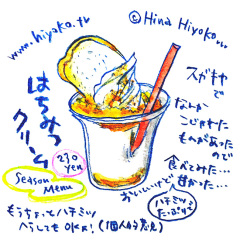 www.hiyoko.tv
© Hina Hiyoko...
はちみつ
クリーム
230
yen
Season
Menu
スガキヤで
なんか
こじゃれた
ものがあった
ので
食べてみた…
おいしいけど
甘かった…
ハチミツ
たっぷり
もうちょっとハチミツ
へらしても OKよ! (個人的意見)